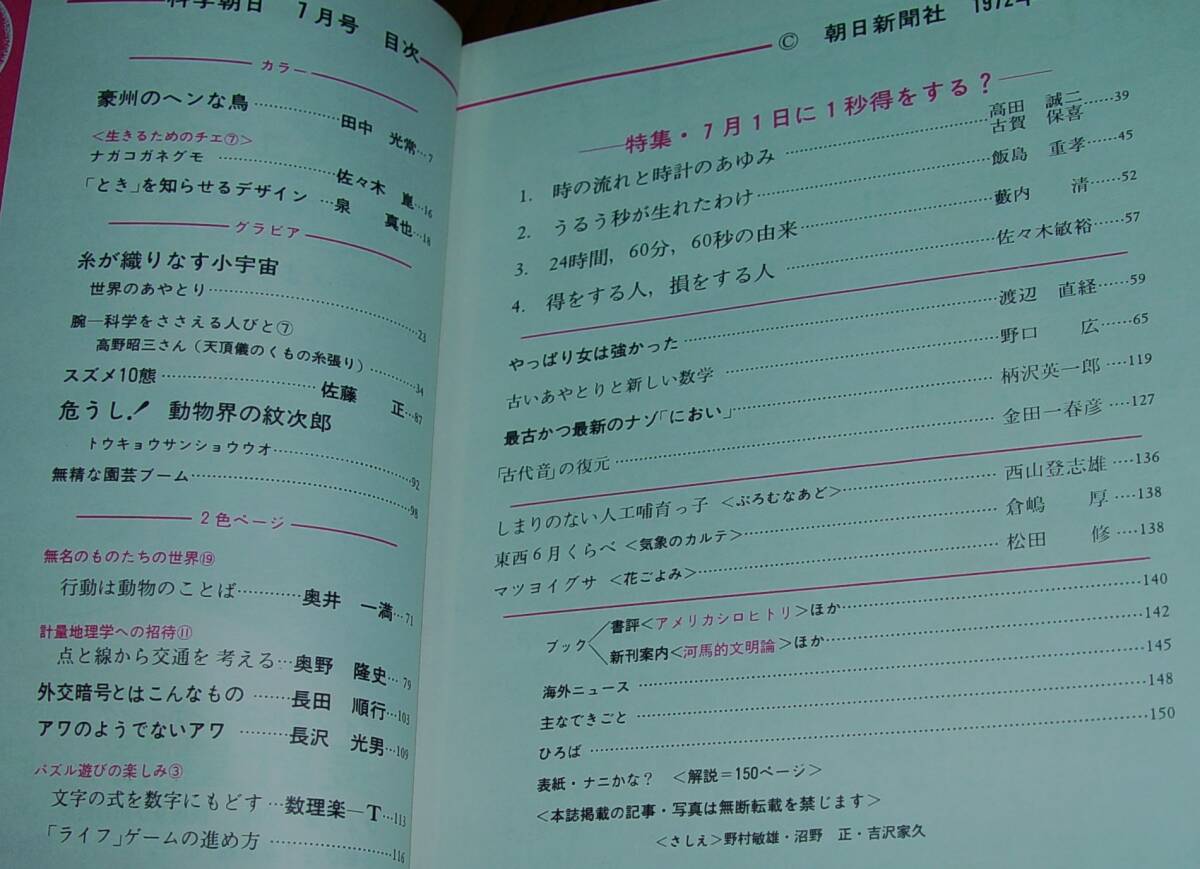 科学朝日 7月号 目次
カラー
豪州のヘンな鳥……田中 光常…7
<生きるためのチエ⑦>
ナガコガネグモ……佐々木 崑…16
「とき」を知らせるデザイン…泉 真也…18
グラビア
糸が織りなす小宇宙
世界のあやとり……23
腕―科学をささえる人びと⑦
高野昭三さん(天頂儀のくもの糸張り)……34
スズメ10態……佐藤 正…87
危うし!動物界の紋次郎
トウキョウサンショウウオ……92
無精な園芸ブーム……98
2色ページ
無名のものたちの世界⑲
行動は動物のことば……奥井 一満…71
計量地理学への招待⑪
点と線から交通を考える…奥野 隆史…79
外交暗号とはこんなもの……長田 順行…103
アワのようでないアワ……長沢 光男…109
パズル遊びの楽しみ③
文字の式を数字にもどす…数理楽―T…113
「ライフ」ゲームの進め方……116
© 朝日新聞社 1972年
特集・7月1日に1秒得をする?
1. 時の流れと時計のあゆみ……高田 誠二 古賀 保喜……39
2. うるう秒が生れたわけ……飯島 重孝……45
3. 24時間,60分,60秒の由来……藪内 清……52
4. 得をする人,損をする人……佐々木敏裕……57
やっぱり女は強かった……渡辺 直経……59
古いあやとりと新しい数学……野口 広……65
最古かつ最新のナゾ「におい」……柄沢英一郎……119
「古代音」の復元……金田一春彦……127
しまりのない人工哺育っ子<ぶろむなあど>……西山登志雄……136
東西6月くらべ<気象のカルテ>……倉嶋 厚……138
マツヨイグサ<花ごよみ>……松田 修……138
ブック
書評<アメリカシロヒトリ>ほか……140
新刊案内<河馬的文明論>ほか……142
海外ニュース……145
主なできごと……148
ひろば……150
表紙・ナニかな? <解説=150ページ>
<本誌掲載の記事・写真は無断転載を禁じます>
<さしえ>野村敏雄・沼野 正・吉沢家久